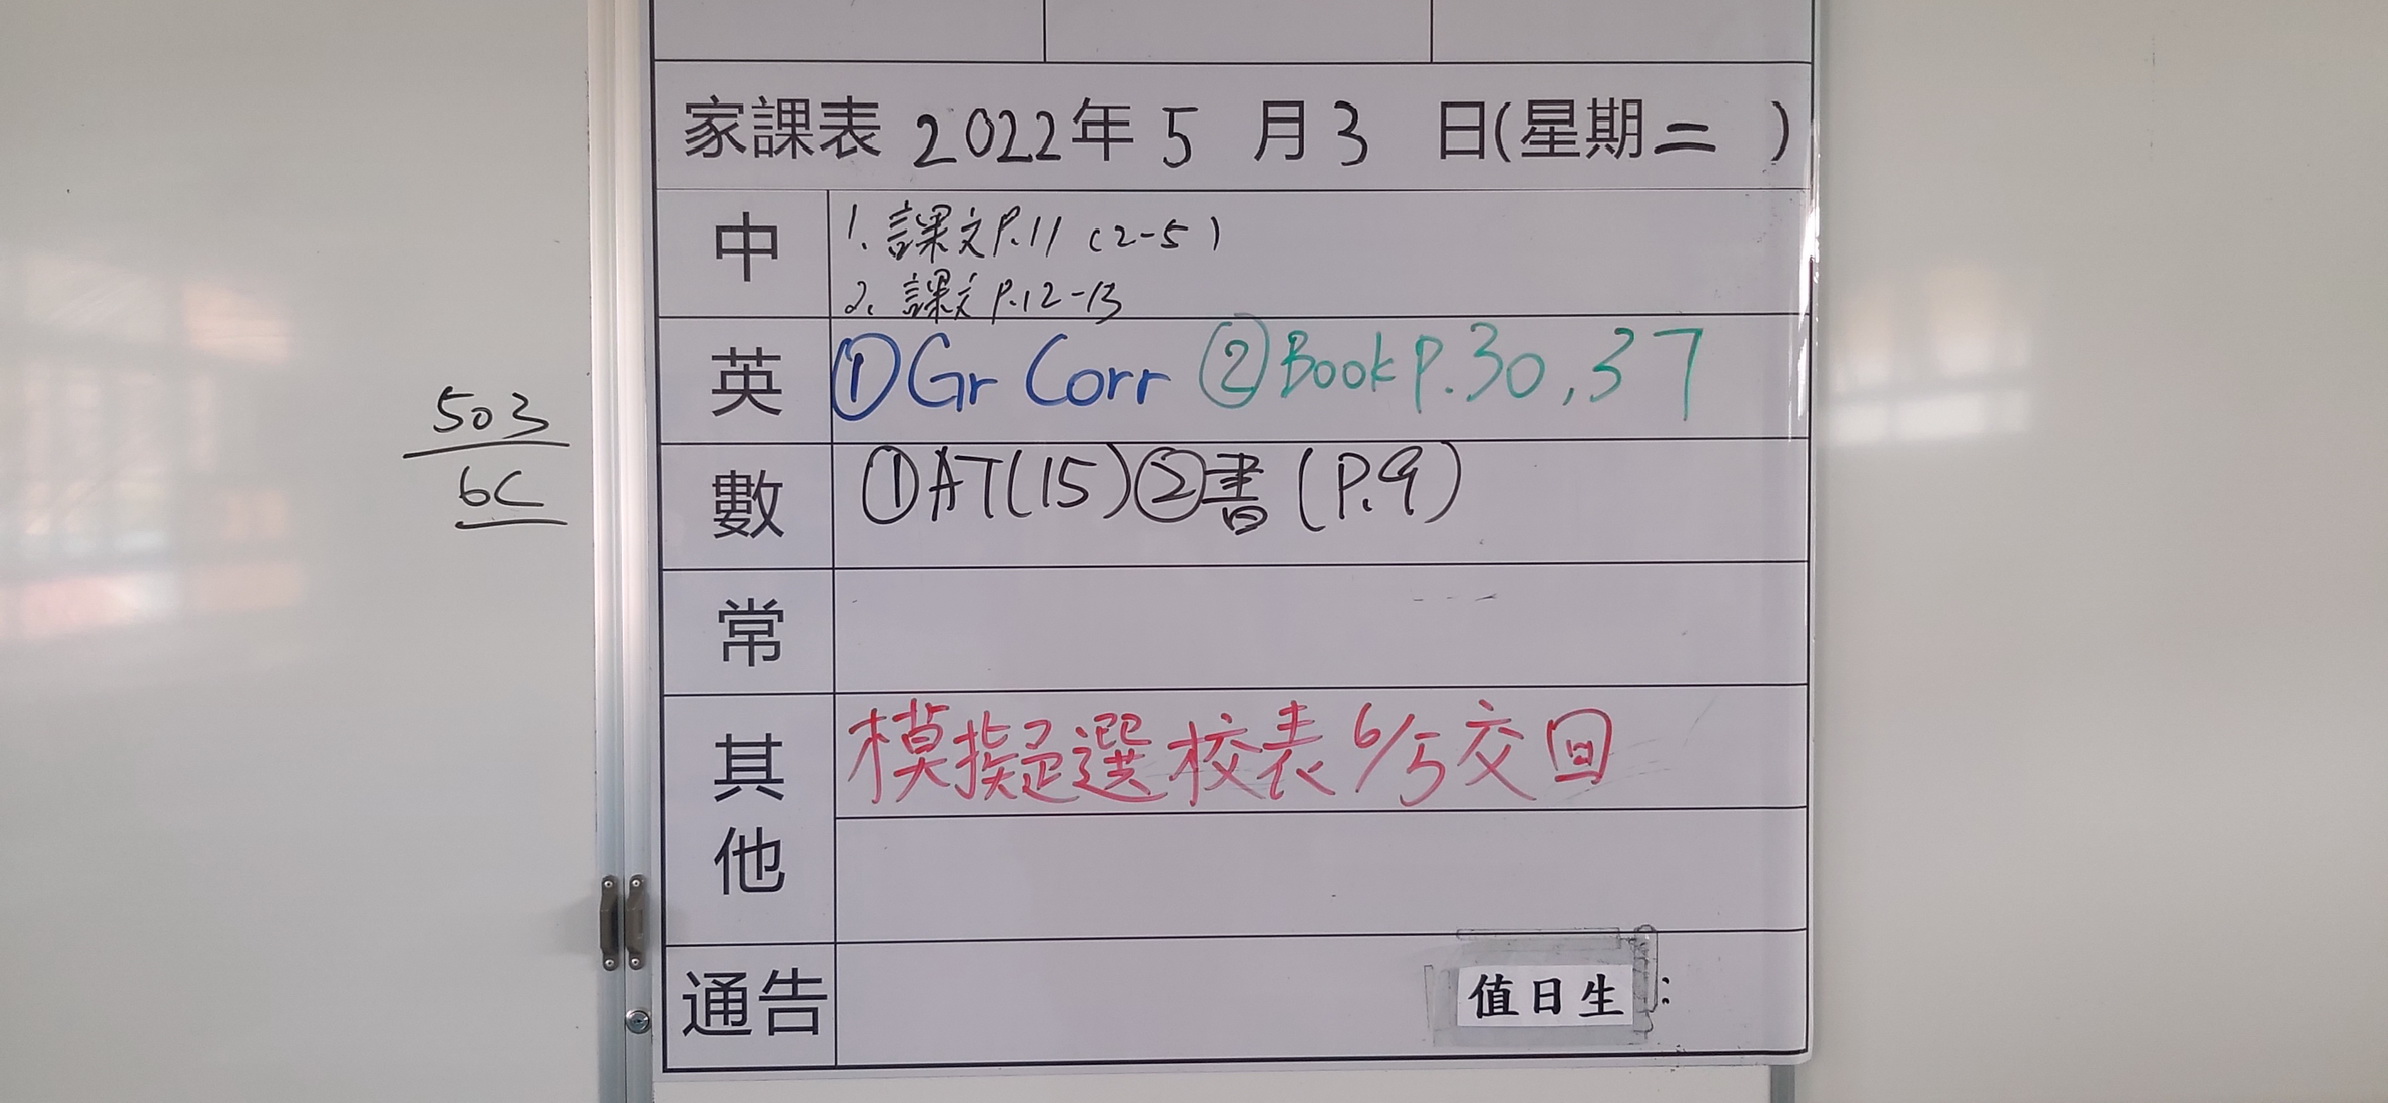 家課表 2022年 5 月 3 日(星期二 )
中
1. 課文P.11 (2-5)
2. 課文P.12-13
英
①Gr Corr ②Book P.30,37
數
①AT(15)②書(P.9)
常
其他
模擬選校表 6/5交回
通告
值日生:
503
6C